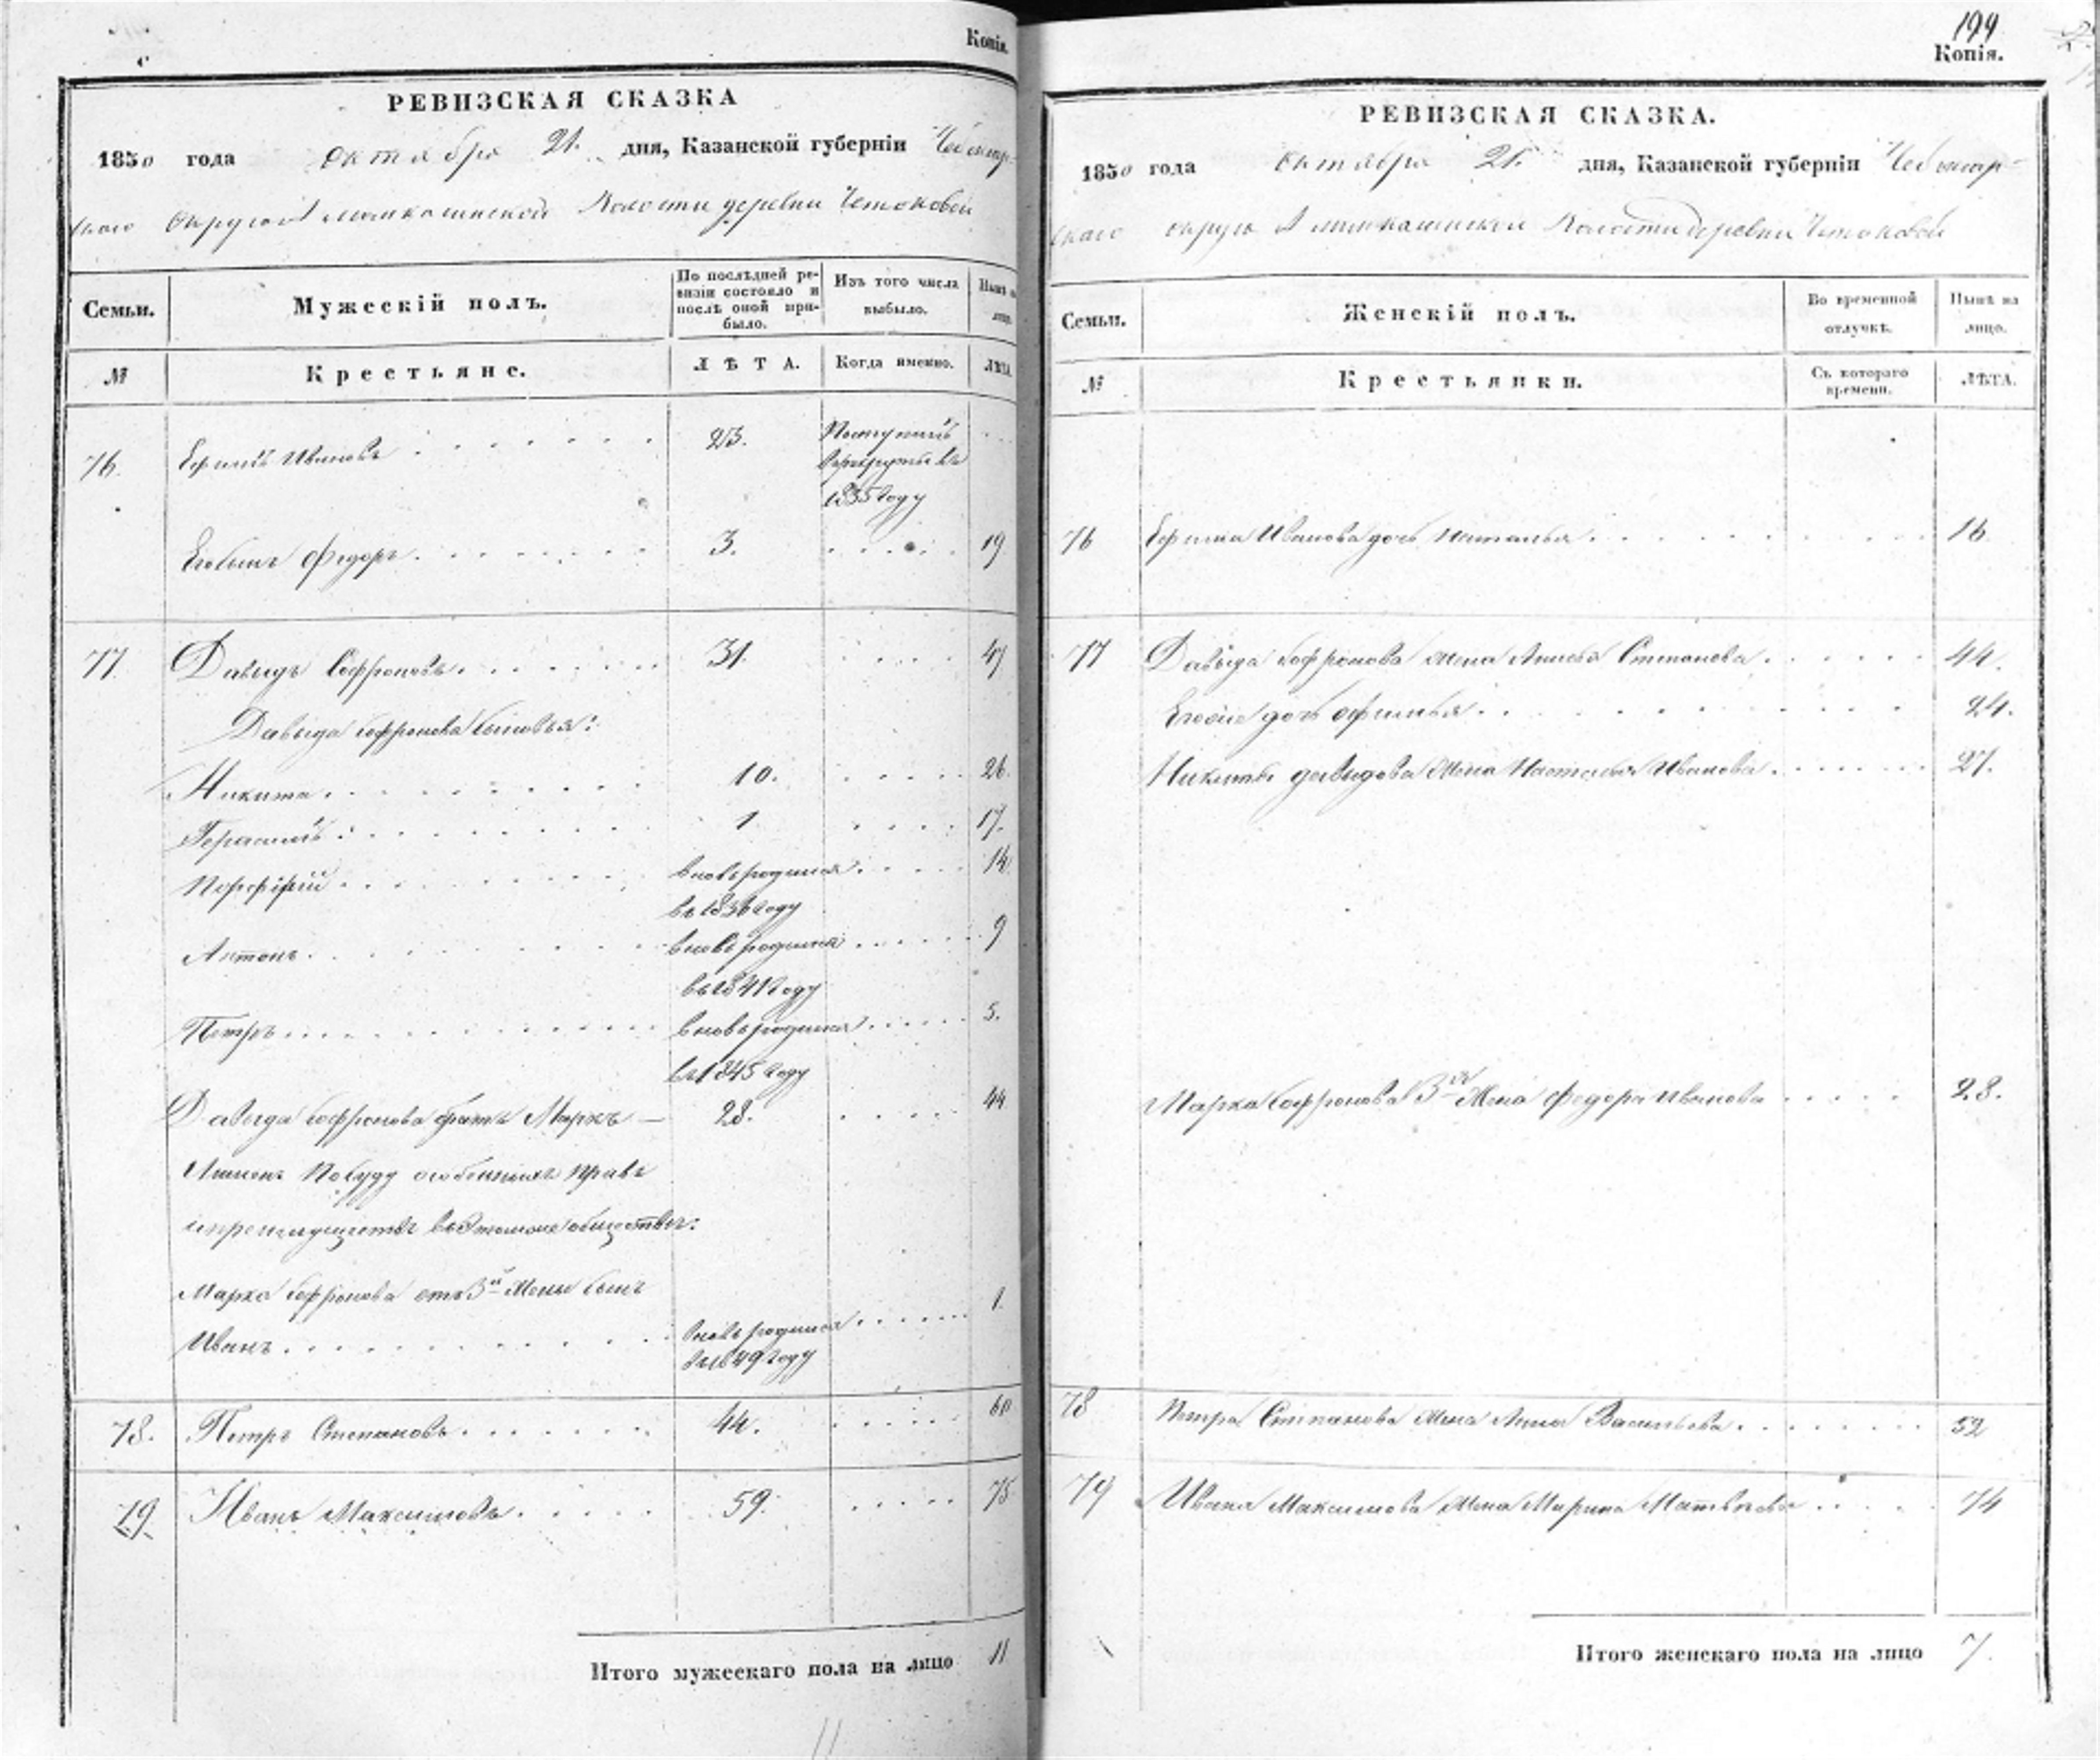 Копія.
РЕВИЗСКАЯ СКАЗКА
1850 года октября 21. дня, Казанской губерніи Чебоксар-
скаго округа Волости деревни
Семьи.
Мужескій полъ.
По послѣдней ре-
визіи состояло и
послѣ оной при-
было.
Изъ того числа
выбыло.
Нынѣ на
лицо.
№
Крестьяне.
ЛѢТА.
Когда именно.
ЛѢТА.
76. Ефимъ Ивановъ 23. Поступилъ
в рекруты въ
1835 году
Егосынъ Федоръ 3. 19
77. Давыдъ Софроновъ 31. 47
Давыда Софронова сыновья:
Никита 10. 26.
Герасимъ 1 17.
Порфирій вновь родился 14
въ 1836 году
Антонъ вновь родился 9
въ 1841 году
Петръ вновь родился 5.
въ 1845 году
Давыда Софронова братъ Маркъ — 28. 44
особенныхъ правъ
обществе:
Марка Софронова отъ 3й жены сынъ
Иванъ вновь родился 1.
въ 1849 году
78. Петръ Степановъ 44. 60
79. Иванъ Максимовъ 59. 75
Итого мужескаго пола на лицо 11
199
Копія.
РЕВИЗСКАЯ СКАЗКА.
1850 года октября 21. дня, Казанской губерніи Чебоксар-
скаго округа Волости деревни
Семьи.
Женскій полъ.
Во временной
отлучкѣ.
Нынѣ на
лицо.
№
Крестьянки.
Съ котораго
времени.
ЛѢТА.
76 Ефима Иванова дочь Наталья 16
77 Давыда Софронова жена Степанова 44.
Егоже дочь Офимья 24.
Никиты Давыдова жена Наталья Иванова 27.
Марка Софронова 3я жена Федора Иванова 28.
78 Петра Степанова жена Анна Васильева 52
79 Ивана Максимова жена Марина Матвеева 74
Итого женскаго пола на лицо 7.